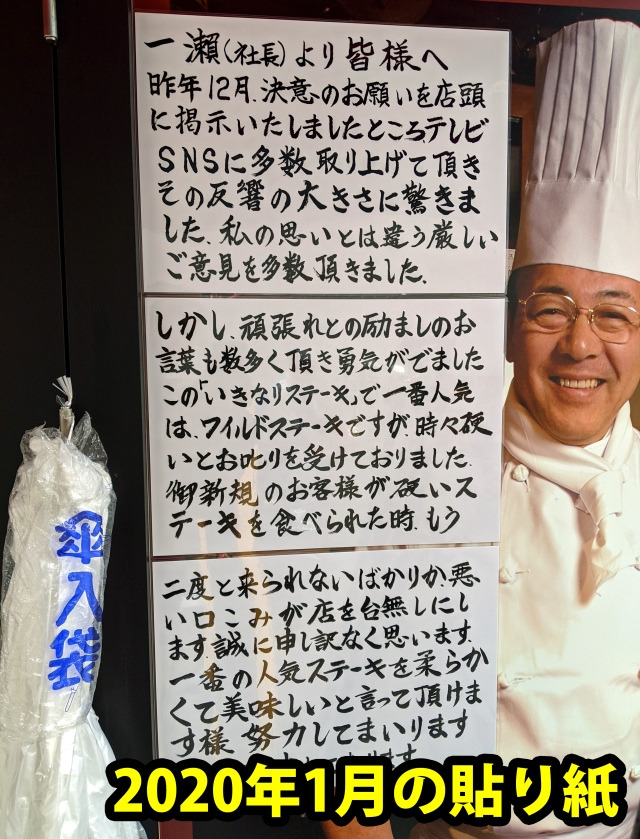 一瀬(社長)より皆様へ
昨年12月、決意のお願いを店頭
に掲示いたしましたところテレビ
SNSに多数取り上げて頂き
その反響の大きさに驚きま
した。私の思いとは違う厳しい
ご意見を多数頂きました。
しかし、頑張れとの励ましのお
言葉も数多く頂き勇気がでました
この「いきなりステーキ」で一番人気
は、ワイルドステーキですが、時々硬
いとお叱りを受けておりました。
御新規のお客様が硬いス
テーキを食べられた時、もう
二度と来られないばかりか、悪
い口こみが店を台無しにし
ます。誠に申し訳なく思います。
一番の人気ステーキを柔らか
くて美味しいと言って頂けま
す様、努力してまいります
傘入袋
2020年1月の貼り紙